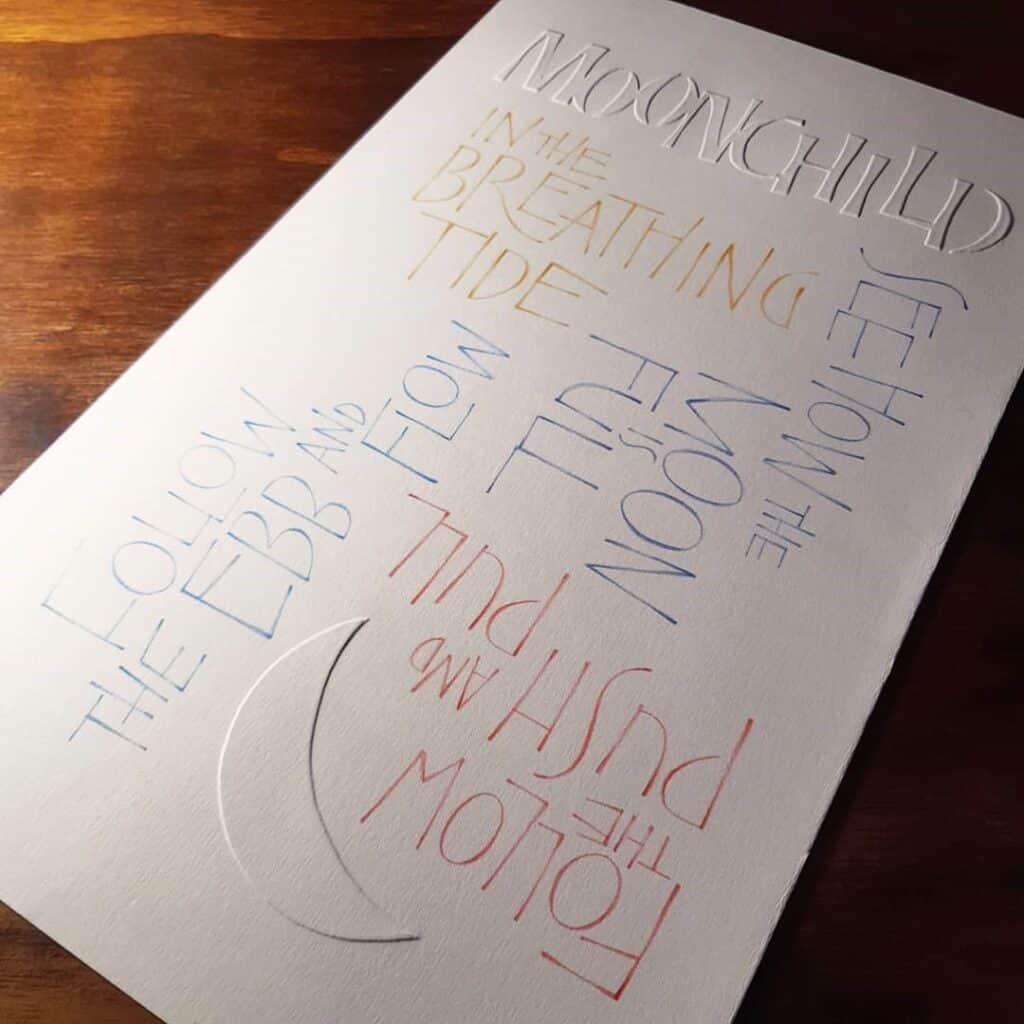 MOONCHILD
IN THE
BREATHING
TIDE
SEE HOW THE
MOON
IS
FULL
NOW
FOLLOW
THE EBB AND
FLOW
FOLLOW
THE
PUSH AND
PULL